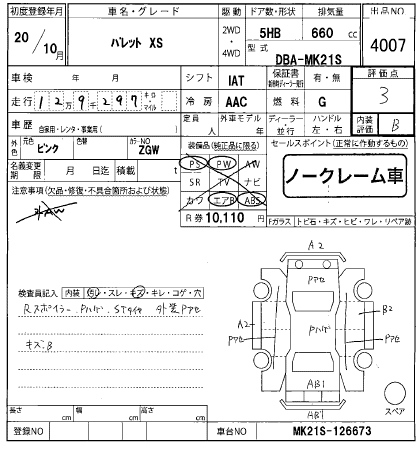 初度登録年月 車名・グレード 駆動 ドア数・形状 排気量 出品NO
20/10月 パレット XS 2WD・4WD 5HB 660 cc 4007
型式 DBA-MK21S
車検 年 月 シフト IAT 保証書 有・無 評価点 3
走行 12万9千297 キロ・マイル 冷房 AAC 燃料 G
車歴 自家用・レンタ・事業用( ) 定員 人 外車モデル 年 ディーラー・並行 ハンドル 左・右 内装評価 B
外色 元色 ピンク 色替 カラーNO ZGW 装備品(純正品に限る) セールスポイント(正常に作動するもの)
名義変更期限 月 日迄 積載 t PS PW AW
ノークレーム車
注意事項(欠品・修復・不具合箇所および状態) SR TV ナビ
カワ エアB ABS
R券 10,110 円 Fガラス トビ石・キズ・ヒビ・ワレ・リペア跡
A2
Pアセ
検査員記入 内装 ・スレ・キズ・キレ・コゲ・穴
Rスポイラー Pハゲ STタイヤ 外装Pアセ
A2 Pアセ Pハゲ Pアセ B2
キズB
AB1
AB1
スペア
長さ cm 幅 cm 高さ cm
登録NO 車台NO MK21S-126673